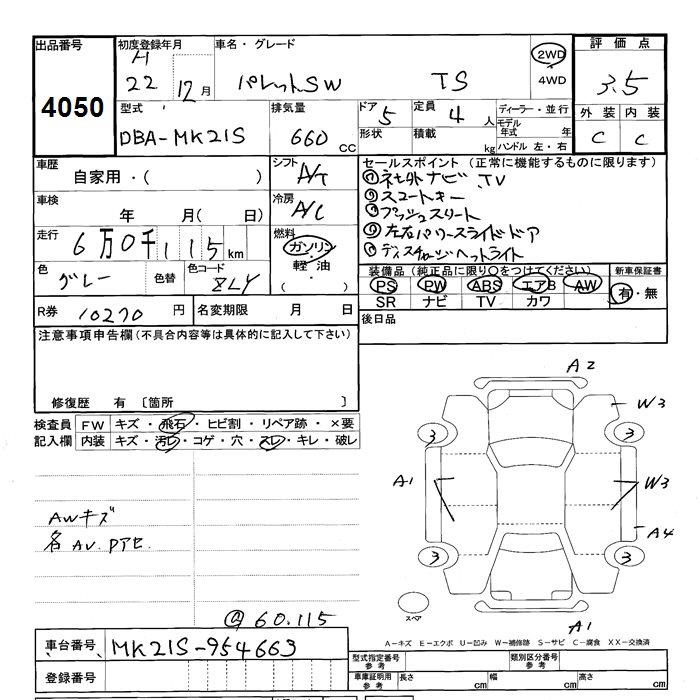 出品番号 初度登録年月 車名・グレード 2WD 評価点
4050 H 22 12月 パレットSW TS 4WD 3.5
型式 排気量 ドア 5 定員 4人 ディーラー・並行 外装 内装
DBA-MK21S 660 CC 形状 積載 kg モデル年式 年 C C
ハンドル 左・右
車歴 自家用・( ) シフト A/T セールスポイント(正常に機能するものに限ります)
①社外ナビ、TV
車検 年 月( 日) 冷房 A/C ②スマートキー
③プッシュスタート
走行 6万0千115km 燃料 ガソリン ④左右パワースライドドア
軽油 ・( ) ⑤ディスチャージヘッドライト
色 グレー 色替 色コード ZLY 装備品(純正品に限り○をつけてください) 新車保証書
PS PW ABS エアB AW 有・無
SR ナビ TV カワ
R券 10270円 名変期限 月 日 後日品
注意事項申告欄(不具合内容等は具体的に記入して下さい)
修復歴 有 〔箇所 〕
検査員 FW キズ・飛石・ヒビ割・リペア跡・×要
記入欄 内装 キズ・汚レ・コゲ・穴・スレ・キレ・破レ
A2
W3
3 3
A1 W3
A4
3 3
スペア
A1
AWキズ
各AV.Pアセ
@60.115
A-キズ E-エクボ U-凹み W-補修跡 S-サビ C-腐食 XX-交換済
車台番号 MK21S-954663
型式指定番号 参考 類別区分番号 参考
登録番号 車庫証明用 参考 長さ cm 幅 cm 高さ cm